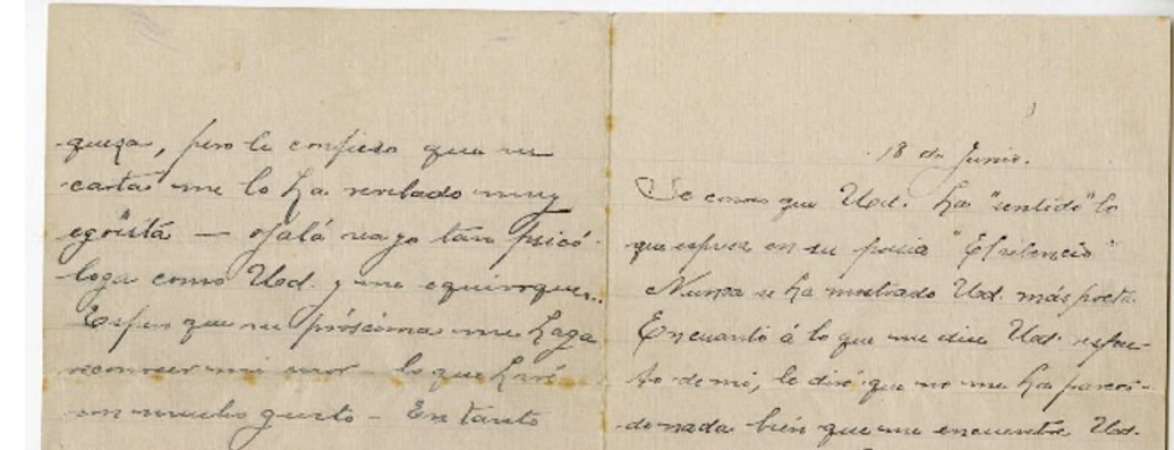 queza, pero le confieso que su
carta me lo ha revelado muy
egoista — ojalá sea yo tan psicó-
loga como Ud. y me equivoque..
Espero que su próxima me haga
reconocer mi error lo que haré
con mucho gusto – En tanto
18 de Junio.
Se conoce que Ud. ha "sentido" lo
que espresa en su poesia "El silencio"
Nunca se ha mostrado Ud. más poeta.
En cuanto á lo que me dice Ud. respec-
to de mi, le diré que no me ha pareci-
do nada bién que me encuentre Ud.